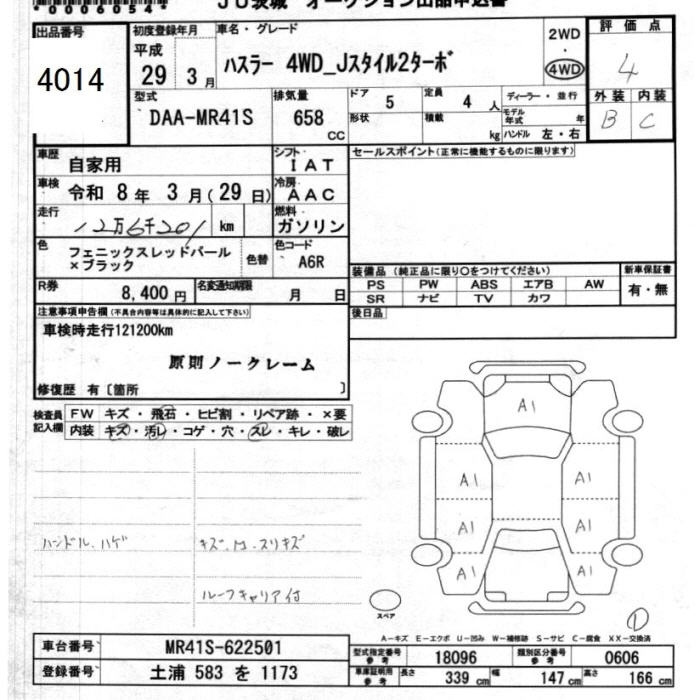 *0006054*
JU茨城 オークション出品申込書
出品番号
4014
初度登録年月
平成
29 3月
車名・グレード
ハスラー 4WD_Jスタイル2ターボ
2WD
・
4WD
評価点
4
外装 内装
B C
型式
DAA-MR41S
排気量
658
CC
ドア 5
定員 4人
ディーラー・並行
形状
積載 kg
モデル年式 年
ハンドル 左・右
車歴 自家用
シフト IAT
セールスポイント(正常に機能するものに限ります)
車検 令和 8年 3月(29日)
冷房 AAC
走行 12万6千201 km
燃料 ガソリン
色 フェニックスレッドパール
×ブラック
色替
色コード A6R
R券 8,400円
名変通知期限 月 日
装備品(純正品に限り○をつけてください)
新車保証書
PS PW ABS エアB AW
SR ナビ TV カワ
有・無
後日品
注意事項申告欄(不具合内容等は具体的に記入して下さい)
車検時走行121200km
原則ノークレーム
修復歴 有〔箇所 〕
検査員
記入欄
FW キズ・飛石・ヒビ割・リペア跡・×要
内装 キズ・汚レ・コゲ・穴・スレ・キレ・破レ
A1
A1 A1
A1 A1
A1 A1
ハンドル.ハゲ
キズ.凹.スリキズ
ルーフキャリア付
スペア
D
A-キズ E-エクボ U-凹み W-補修跡 S-サビ C-腐食 XX-交換済
車台番号 MR41S-622501
登録番号 土浦 583 を 1173
型式指定番号
参考
18096
類別区分番号
参考
0606
車庫証明用
参考
長さ 339 cm 幅 147 cm 高さ 166 cm